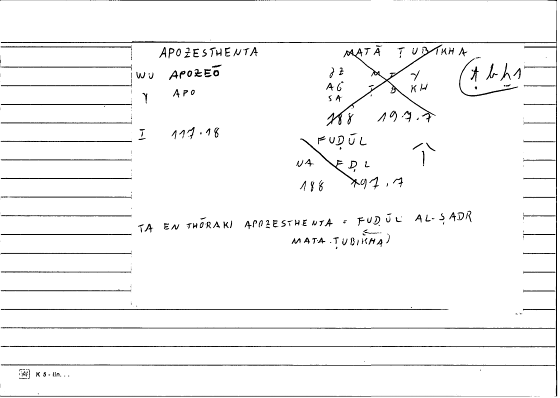 APOZESTHENTA
WU APOZEŌ
Y APO
I 117.18
MATĀ ṬUBIKHA
GZ M T Y
AG Ṭ B KH
SA
188 197.7
ṭbḫ1
FUḌŪL
NA F Ḍ L
188 197.7
TA EN THŌRAKI APOZESTHENTA = FUḌŪL AL-ṢADR
MATA ṬUBIKHA)
K 5 - lin...